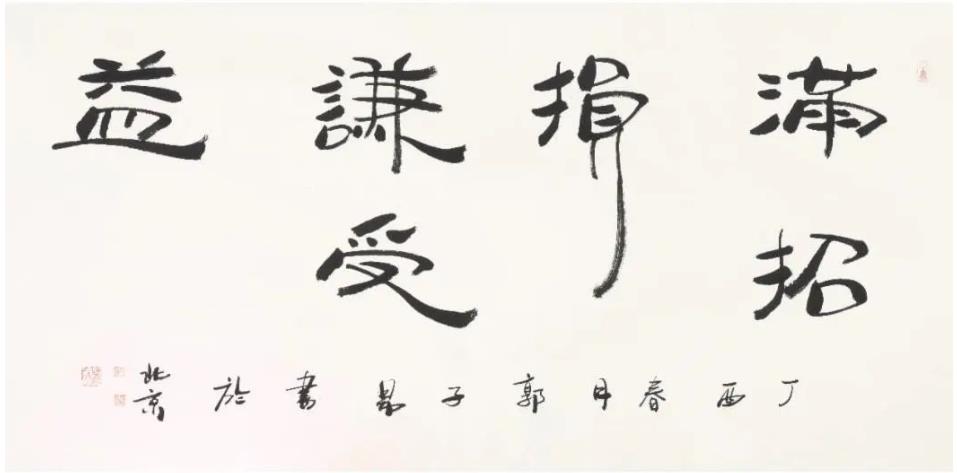 滿招
損
謙受
益
丁酉春月郭子書於北京